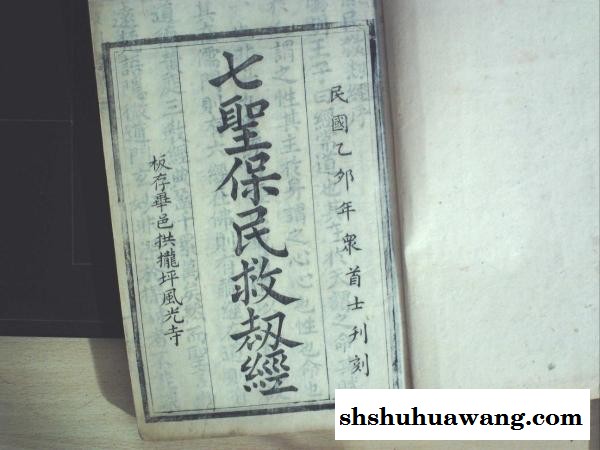 民國乙卯年眾首士刊刻
七聖保民救刼經
板存畢邑拱攏坪風光寺
shshuhuawang.com